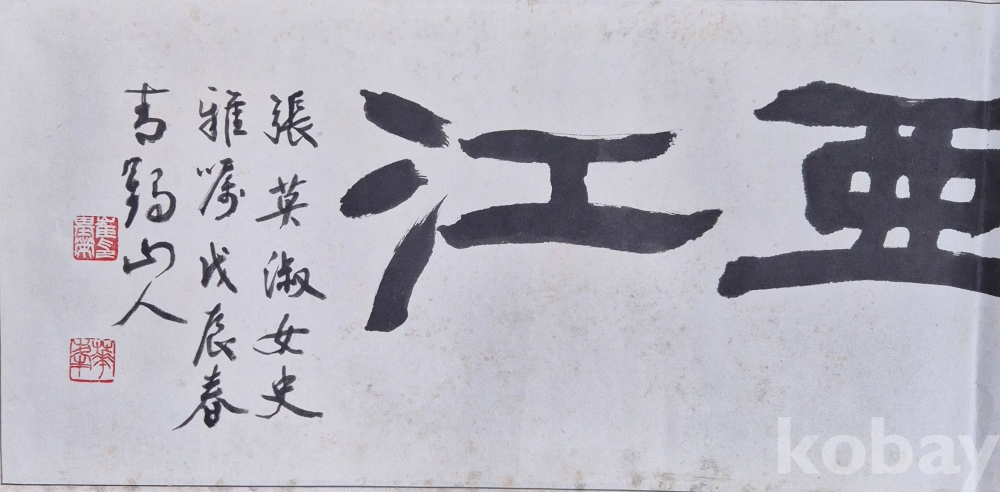 亞江
張英淑女史
雅囑戊辰春
青鶴山人
kobay